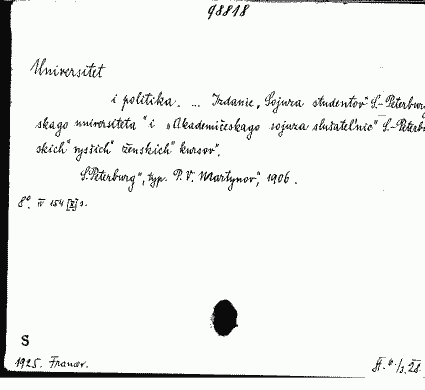 98818
Universitet
i politika. ... Izdanie „Sojuza studentov" S.-Peterburg
skago universiteta" i „Akademičeskago sojuza slušatel'nic" S.-Peterbu
skich" vysšich" ženskich" kursov".
S. Peterburg", typ. P. V. Martynov", 1906.
8°. IV 154 s.
S
1925. Francev.